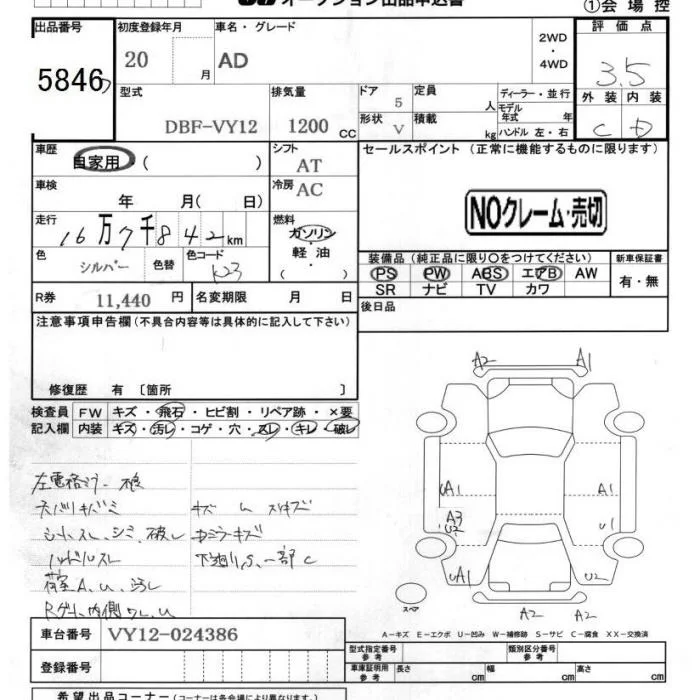 オークション出品申込書
①会場控
出品番号 初度登録年月 車名・グレード 2WD・4WD 評価点
5846 20 年 月 AD 3.5
型式 排気量 ドア 5 定員 人 ディーラー・並行 外装 内装
DBF-VY12 1200 CC 形状 V 積載 kg モデル年式 年 ハンドル 左・右 C D
車歴 自家用 ( ) シフト AT セールスポイント (正常に機能するものに限ります)
車検 年 月( 日) 冷房 AC
NOクレーム・売切
走行 16万7千842km 燃料 ガソリン・軽油・( )
色 シルバー 色替 色コード K23
装備品 (純正品に限り〇をつけてください) 新車保証書
PS PW ABS エアB AW 有・無
SR ナビ TV カワ
R券 11,440 円 名変期限 月 日
後日品
注意事項申告欄 (不具合内容等は具体的に記入して下さい)
修復歴 有 〔箇所 〕
検査員記入欄 FW キズ・飛石・ヒビ割・リペア跡・×要
内装 キズ・汚れ・コゲ・穴・スレ・キレ・破レ
A2 A1
左電格ミラー
シートスレ、シミ、破レ
ハンドルスレ
下廻りS、一部C
荷室A、U、汚レ
UA1 A1
A3
U2 U1
UA1 U2
スペア
A2 A2
A-キズ E-エクボ U-凹み W-補修跡 S-サビ C-腐食 XX-交換済
車台番号 VY12-024386
型式指定番号 参考 類別区分番号 参考
登録番号
車庫証明用 参考 長さ cm 幅 cm 高さ cm
希望出品コーナー (コーナーは各会場により異なります。)